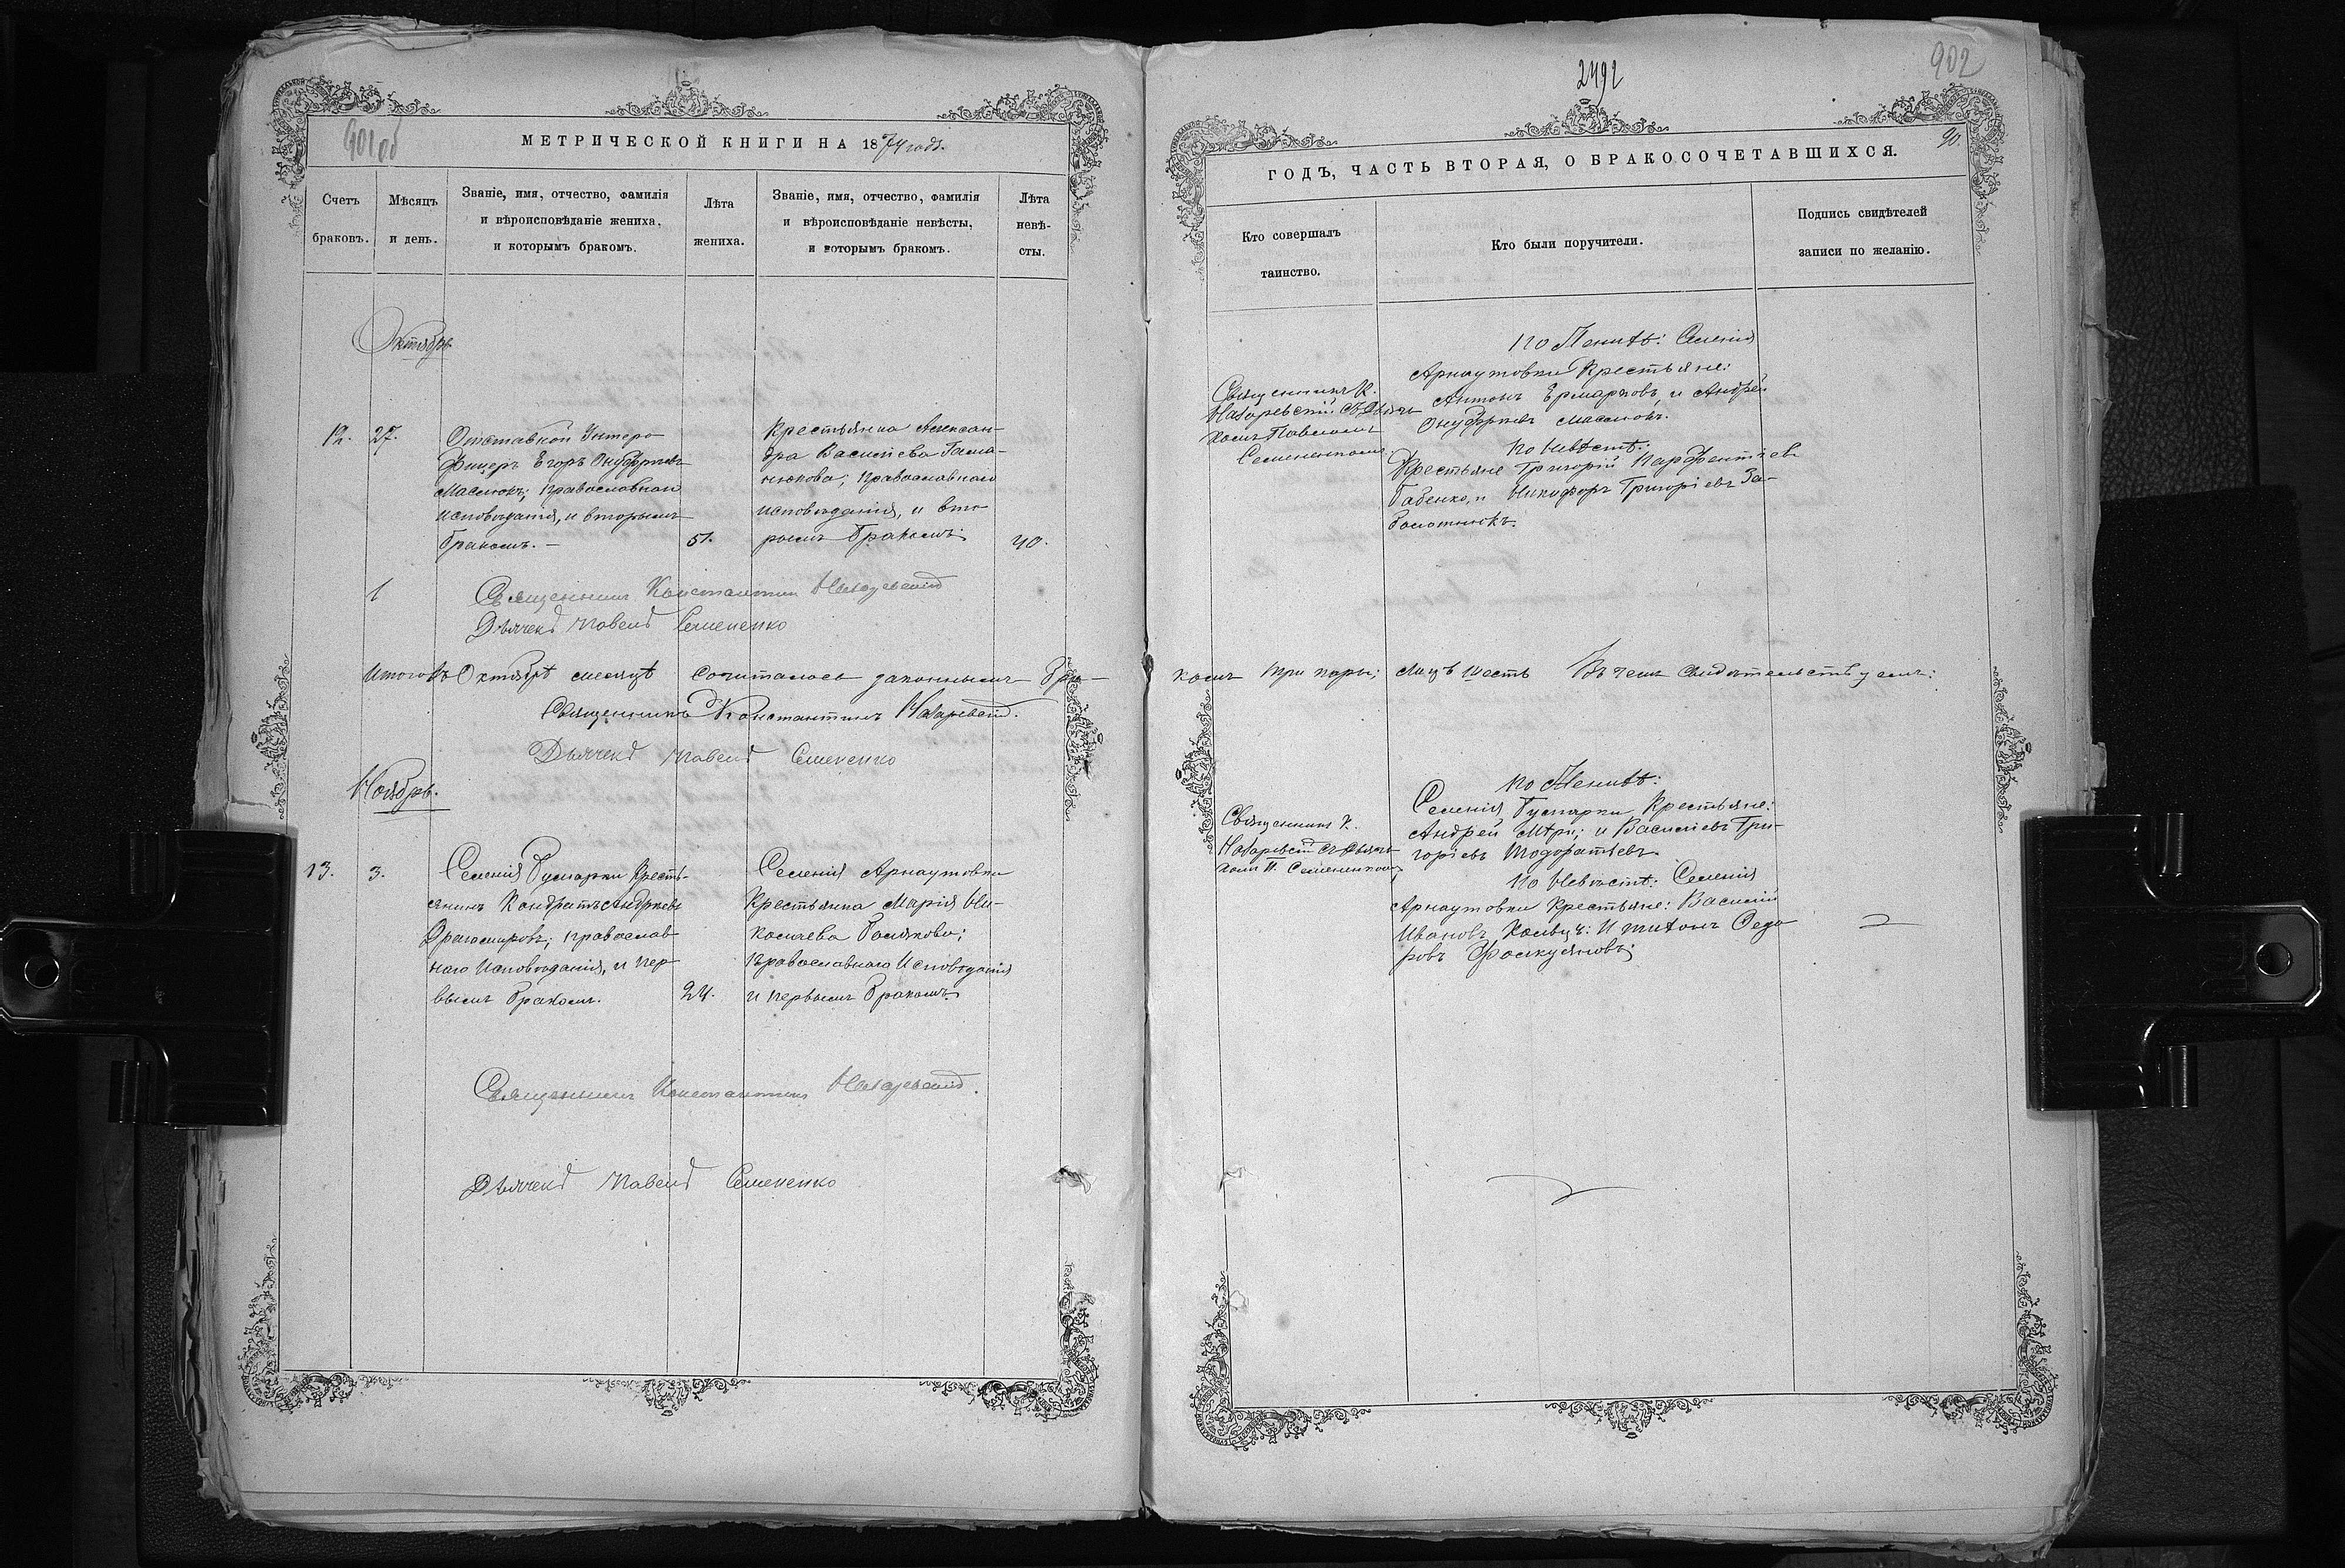 901 об
МЕТРИЧЕСКОЙ КНИГИ НА 1874 годъ.
Счетъ
браковъ.
Мѣсяцъ
и день.
Званіе, имя, отчество, фамилія
и вѣроисповѣданіе жениха,
и которымъ бракомъ.
Лѣта
жениха.
Званіе, имя, отчество, фамилія
и вѣроисповѣданіе невѣсты,
и которымъ бракомъ.
Лѣта
невѣ-
сты.
Октябрь
12.
27.
Отставной Унтеро
фицеръ Егоръ Онуфріевъ
Маслюкъ; православнаго
исповѣданія, и вторымъ
бракомъ. —
51.
Крестьянка Алексан-
дра Васильева
православнаго
исповѣданія, и вто
рымъ бракомъ
40.
1
Священникъ Константинъ Назаревскій
Дьячекъ Павелъ Семененко
Итого въ Октябрѣ месяцѣ сочиталось законнымъ бра-
Священникъ Константинъ Назаревскій.
Дьячекъ Павелъ Семененко
Ноябрь.
13.
3.
Селенія Гулиарки Кресть-
янинъ Кондратъ Андреевъ
Драгомировъ; православ
наго Исповѣданія, и пер
вымъ бракомъ.
24.
Селенія Арнаутовки
Крестьянка Марія Ни-
колаева Полякова;
православнаго Исповѣданія
и первымъ бракомъ
Священникъ Константинъ Назаревскій.
Дьячекъ Павелъ Семененко
2492
902
90.
ГОДЪ, ЧАСТЬ ВТОРАЯ, О БРАКОСОЧЕТАВШИХСЯ.
Кто совершалъ
таинство.
Кто были поручители.
Подпись свидѣтелей
записи по желанію.
Священникъ К.
Назаревскій съ Дьяч
комъ Павломъ
Семененкомъ
По Женихѣ: Селенія
Арнаутовки Крестьяне:
Антонъ Ермарковъ, и Андрей
Онуфріевъ Маслюкъ.
По Невѣстѣ:
Крестьяне Григорій Парфентіевъ
Бабенко, и Никифоръ Григоріевъ За-
болотнюкъ.
комъ три пары; лицъ шесть Въ чемъ свидѣтельствуемъ:
Священникъ К.
Назаревскій съ Дьяч
комъ П. Семененкомъ
По Женихѣ:
Селенія Гулиарки Крестьяне:
Андрей и Василіевъ Гри-
горіевъ
По Невѣстѣ: Селенія
Арнаутовки Крестьяне: Василій
Ивановъ
ровъ